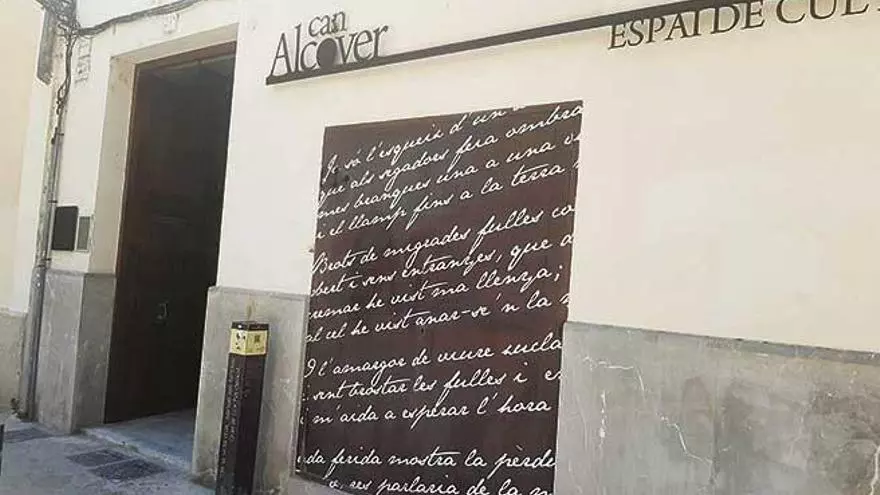 can
Alcover
ESPAI DE CULT
Jo só l'esqueix d'un a
que als segadors feia ombra
mes branques una a una v
i el llamp fins a la terra
Brots de migrades fulles co
obert i sens entranyes, que a
cremar he vist ma llenya;
al cel he vist anar-se'n la m
I l'amargor de viure
sent brostar les fulles i
i m'aida a esperar l'hora
ada ferida mostra la pèrdu
res parlaria de la m